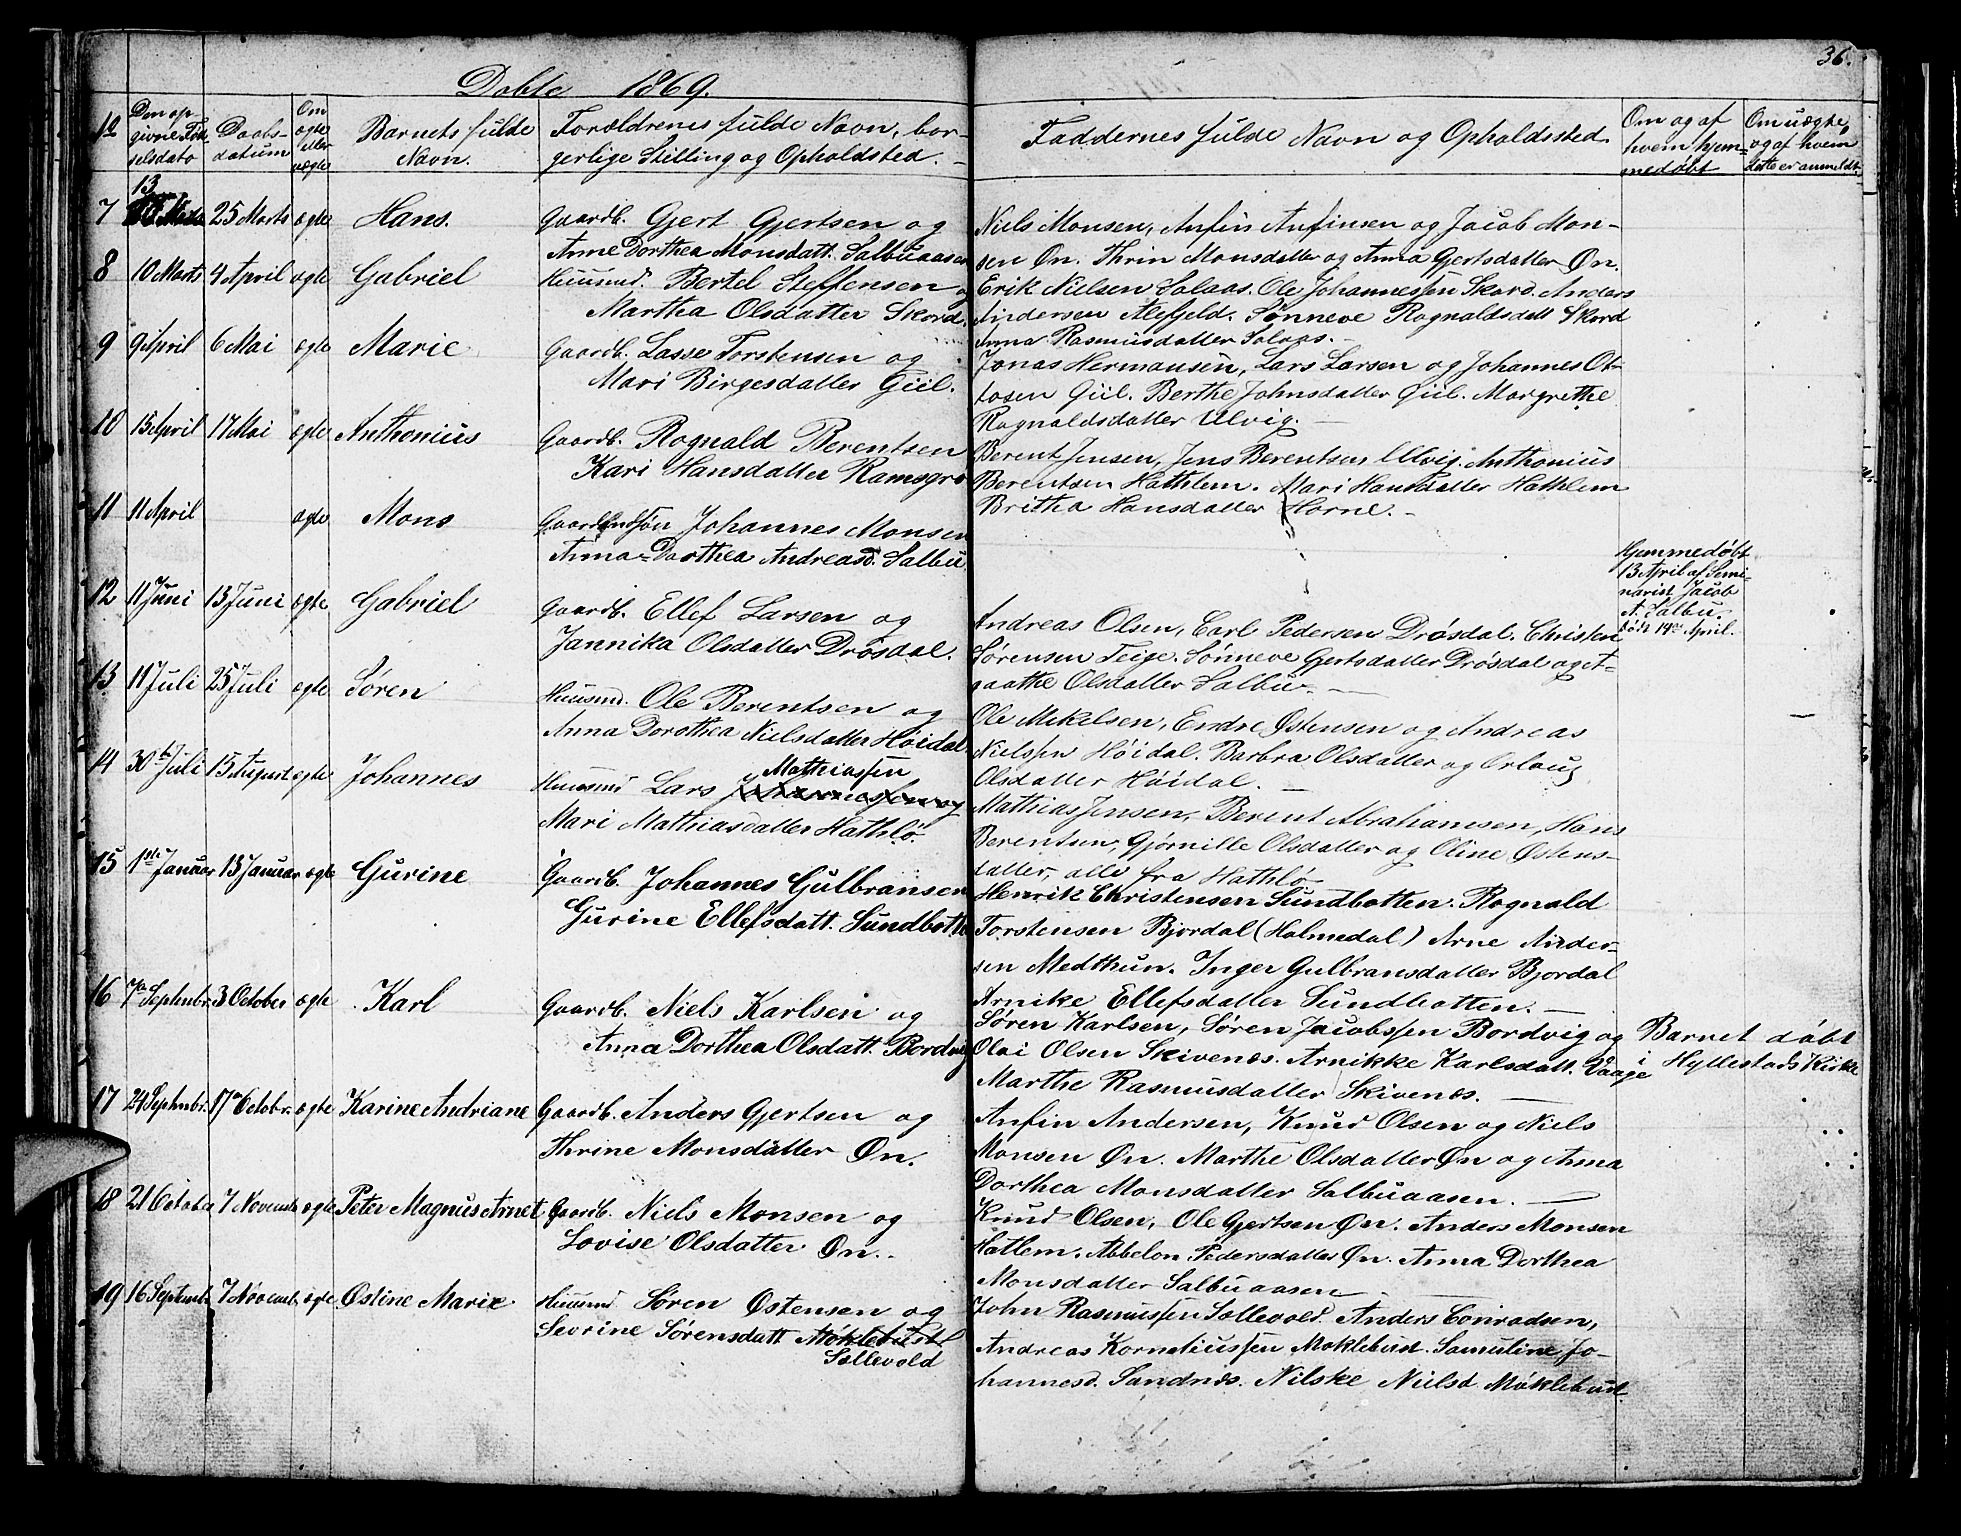 Døbte 1869.
36.
No
Den opgivne Fødselsdato
Daabsdatum
Om ægte eller uægte
Barnets fulde Navn.
Forældrenes fulde Navn, borgerlige Stilling og Opholdsted.
Faddernes fulde Navn og Opholdssted
Om og af hvem hjemmedøbt
Om uægte, og af hvem dette er anmeldt.
7 13 25 Marts ægte Hans.
Gaardb. Gjert Gjertsen og
Anne Dorthea Monsdatt. Salbuaasen
Niels Monsen, Anfin Anfinsen og Jacob Mon-
sen Øn. Thrin Monsdatter og Anna Gertsdatter Øn.
8 10 Marts 4 April ægte Gabriel
Huusmd. Bertel Steffensen og
Martha Olsdatter Skord.
Erik Nielsen Solaas. Ole Johannessen Skord. Anders
Andersen Alefjeld. Sønneve Rognaldsdatt Skord
Anna Rasmusdatter Solaas.
9 9 April 6 Mai ægte Marie
Gaardb. Lasse Torstensen og
Mari Birgesdatter Giil.
Jonas Hermansen, Lars Larsen og Johannes Ot-
tosen Giil. Berthe Johnsdatter Giil. Margrethe
Rognaldsdatter Ulvig.
10 15 April 17 Mai ægte Anthonius
Gaardb. Rognald Berentsen
Kari Hansdatter Ramsgrø
Berent Jensen, Jens Berentsen Ulvig. Anthonius
Berentsen Hathlem. Mari Hansdatter Hathlem
Britha Hansdatter Horne.
11 11 April ægte Mons
Johannes Monsen
Anna-Dorthea Andreasd. Salbu
Hjemmedøbt
13 April af Semi-
narist Jacob
A. Salbu.
April.
12 11 Juni 13 Juni ægte Gabriel
Gaardb. Ellef Larsen og
Jannika Olsdatter Drøsdal.
Andreas Olsen, Carl Pedersen Drøsdal. Christen
Sørensen Teige. Sønneve Gertsdatter Drøsdal og A-
gaathe Olsdatter Salbu.
13 11 Juli 25 Juli ægte Søren
Huusmd. Ole Berentsen og
Anna Dorothea Nielsdatter Høidal
Ole Mekelsen, Endre Østensen og Andreas
Nielssen Høidal. Barbra Olsdatter og Orlaug
Olsdatter Høidal.
14 30 Juli 15 August ægte Johannes
Mathiassen
Huusmd Lars Johannessen og
Mari Mathiasdatter Hathlø.
Mathias Jensen, Berent Abrahamsen, Hans
Berentsen, Gjørnille Olsdatter og Oline Østens-
datter, alle fra Hathlø
15 1ste Januar 13 Januar ægte Gurine
Gaardb. Johannes Gulbransen
Gurine Ellefsdatt. Sundbotte
Henrik Christensen Sundbotten. Rognald
Torstensen Bjordal (Holmedal) Arne Ander-
sen Medthun. Inger Gulbransdatter Bjordal
Arnike Ellefsdatter Sundbotten.
16 7de Septmbr. 3 October ægte Karl
Gaardb. Niels Karlsen og
Anna Dorthea Olsdatt. Bordvig
Søren Karlsen, Søren Jacobssen Bordvig og
Olai Olsen Skivenes. Arnikke Karlsdatt. Vaage
Marthe Rasmusdatter Skivenes.
Barnet døbt
i Hyllestads Kirke
17 24 Septmbr. 17de Octobr. ægte Karine Andriane
Gaardb. Anders Gjertsen og
Thrine Monsdatter Øn.
Anfin Andersen, Knud Olsen og Niels
Monsen Øn. Marthe Olsdatter Øn og Anna
Dorthea Monsdatter Salbuaasen.
18 21 October 7 Novemb ægte Peter Magnus Arnet
Gaardb. Niels Monsen og
Lovise Olsdatter Øn.
Knud Olsen, Ole Gjertsen Øn. Anders Monsen
Hatlem. Abbelon Pedersdatter Øn. Anna Dorthea
Monsdatter Salbuaasen
19 16 Septemb. 7 Novemb. ægte Østine Marie
Huusmd Søren Østensen og
Sevrine Sørensdatt Møklebust
Sollevold
John Rasmussen Sollevold. Anders Conradsen,
Andreas Korneliussen Møklebust. Samuline Jo-
hannesd. Sandnes. Nilske Nielsd Møklebust